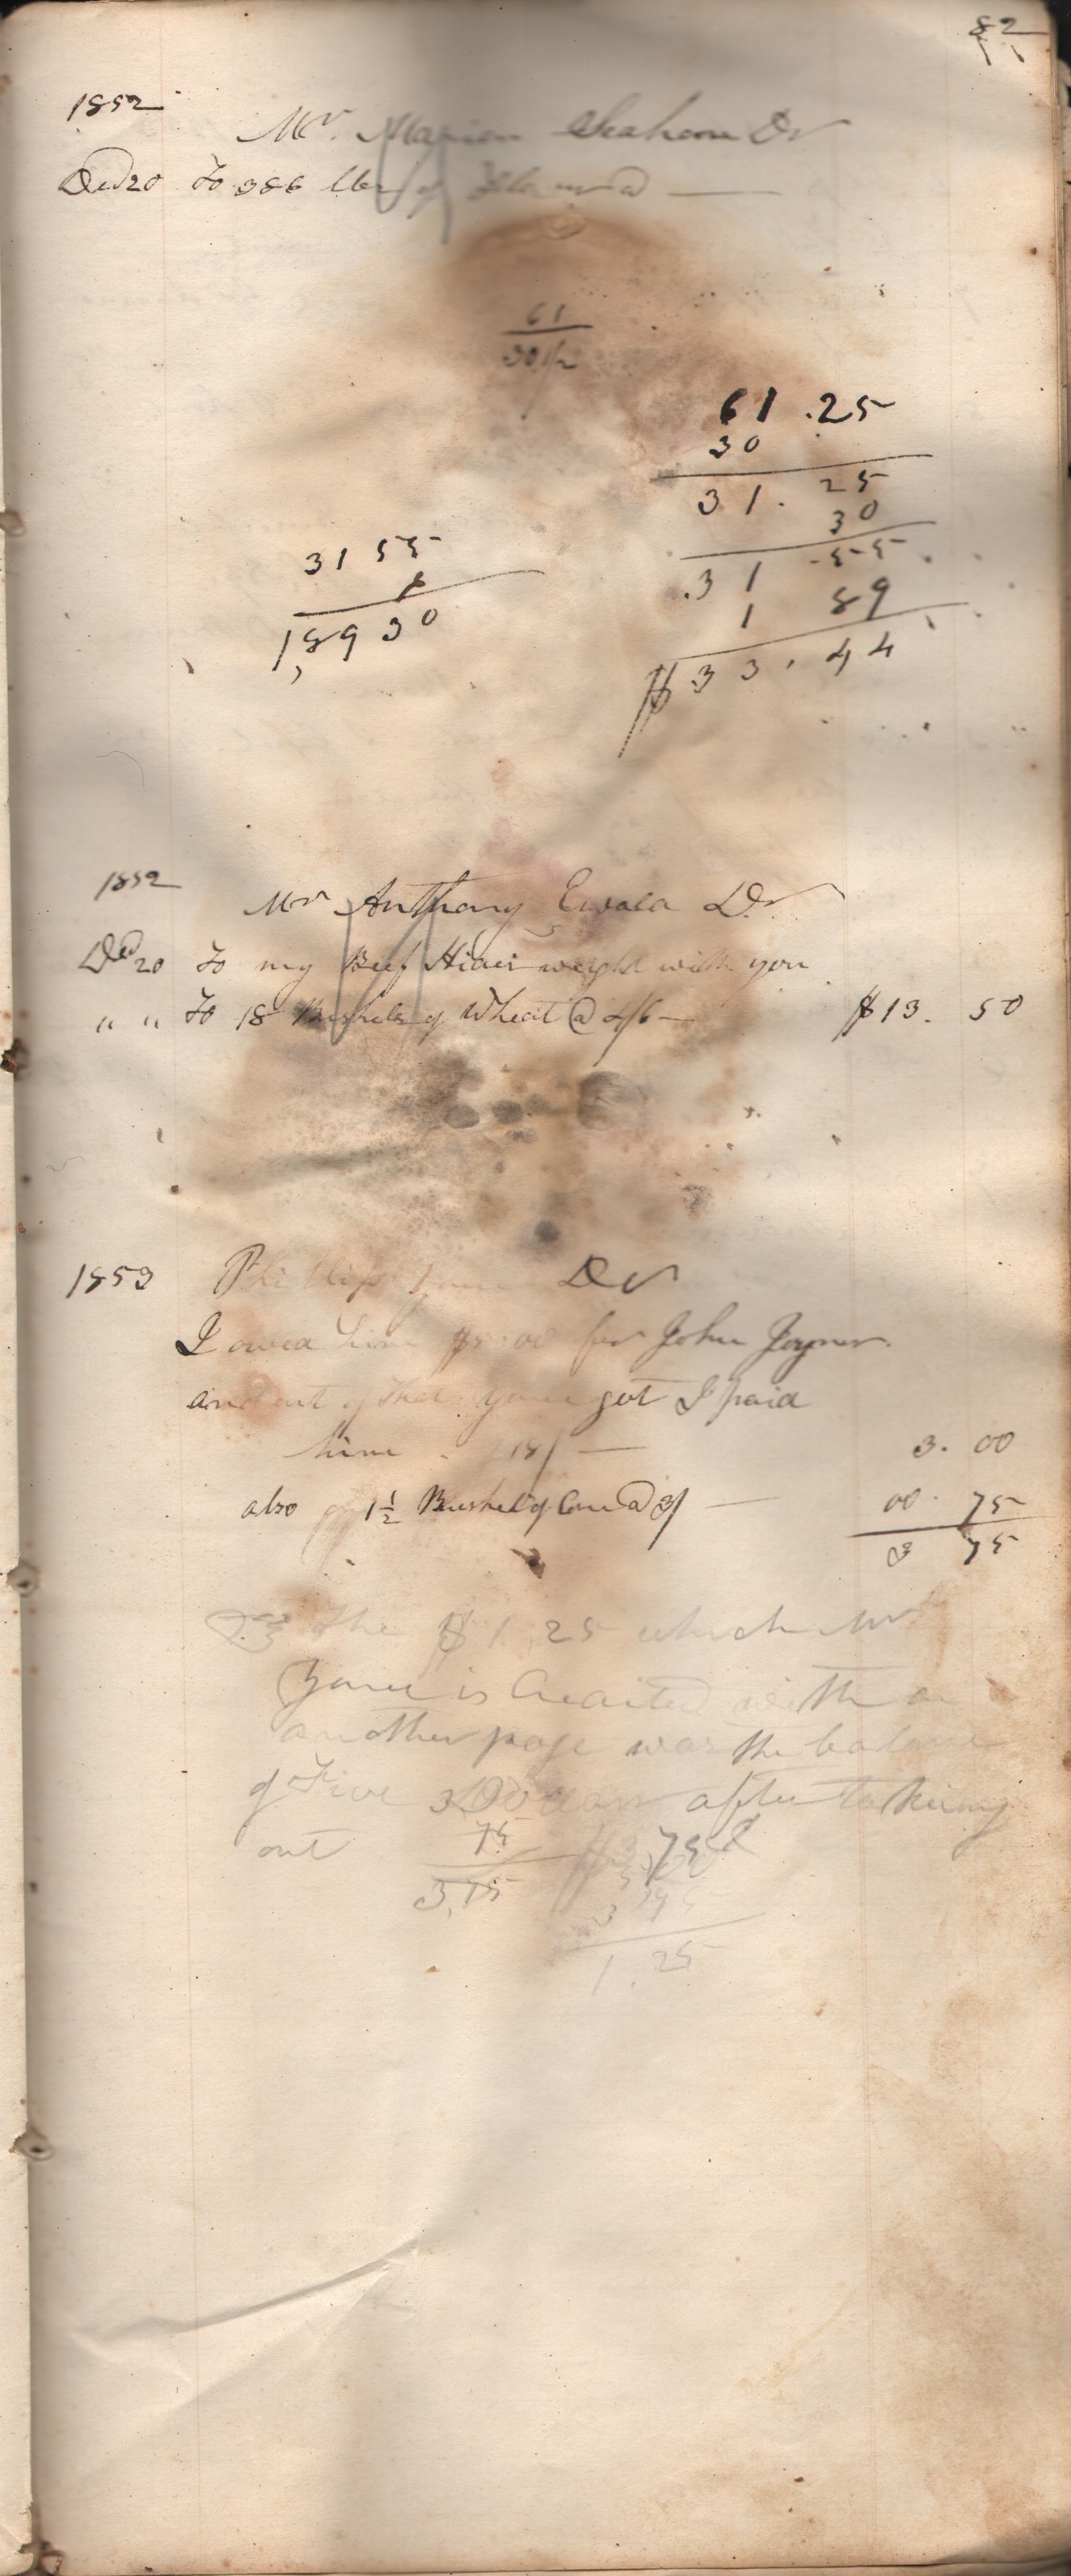 82
1852
Mr. Marion Dr
Dec 20 To 386 lbs of Flour @ —
61
30 1/2
61.25
30
31.25
30
31.55
1 89
$33.44
3155
6
18930
1852
Mr Anthony Ewald Dr
Dec 20 To my Beef Hides weight with you
" " To 18 Bushels of Wheat @ 4/6 — $13.50
1853 Phillip Dr
I owed him for John Joyner
and out of that got I paid
him 18/ — 3.00
also for 1 1/2 Bushel of Corn @ 3/ — 00.75
3 75
The $1.25 which Mr
is Credited with on
another page was the balance
of Five Dollars after taking
out
3
75
3.75
$3.75
5.00
3 75
1.25